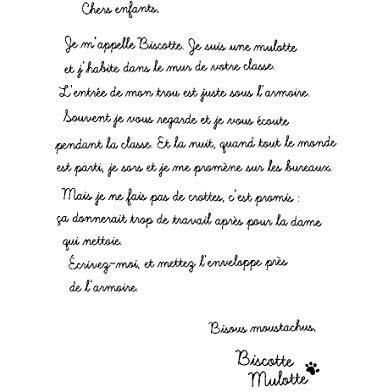 Chers enfants.
Je m'appelle Biscotte. Je suis une mulotte
et j'habite dans le mur de votre classe.
L'entrée de mon trou est juste sous l'armoire.
Souvent je vous regarde et je vous écoute
pendant la classe. Et la nuit, quand tout le monde
est parti, je sors et je me promène sur les bureaux.
Mais je ne fais pas de crottes, c'est promis :
ça donnerait trop de travail après pour la dame
qui nettoie.
Écrivez-moi, et mettez l'enveloppe près
de l'armoire.
Bisous moustachus.
Biscotte
Mulotte